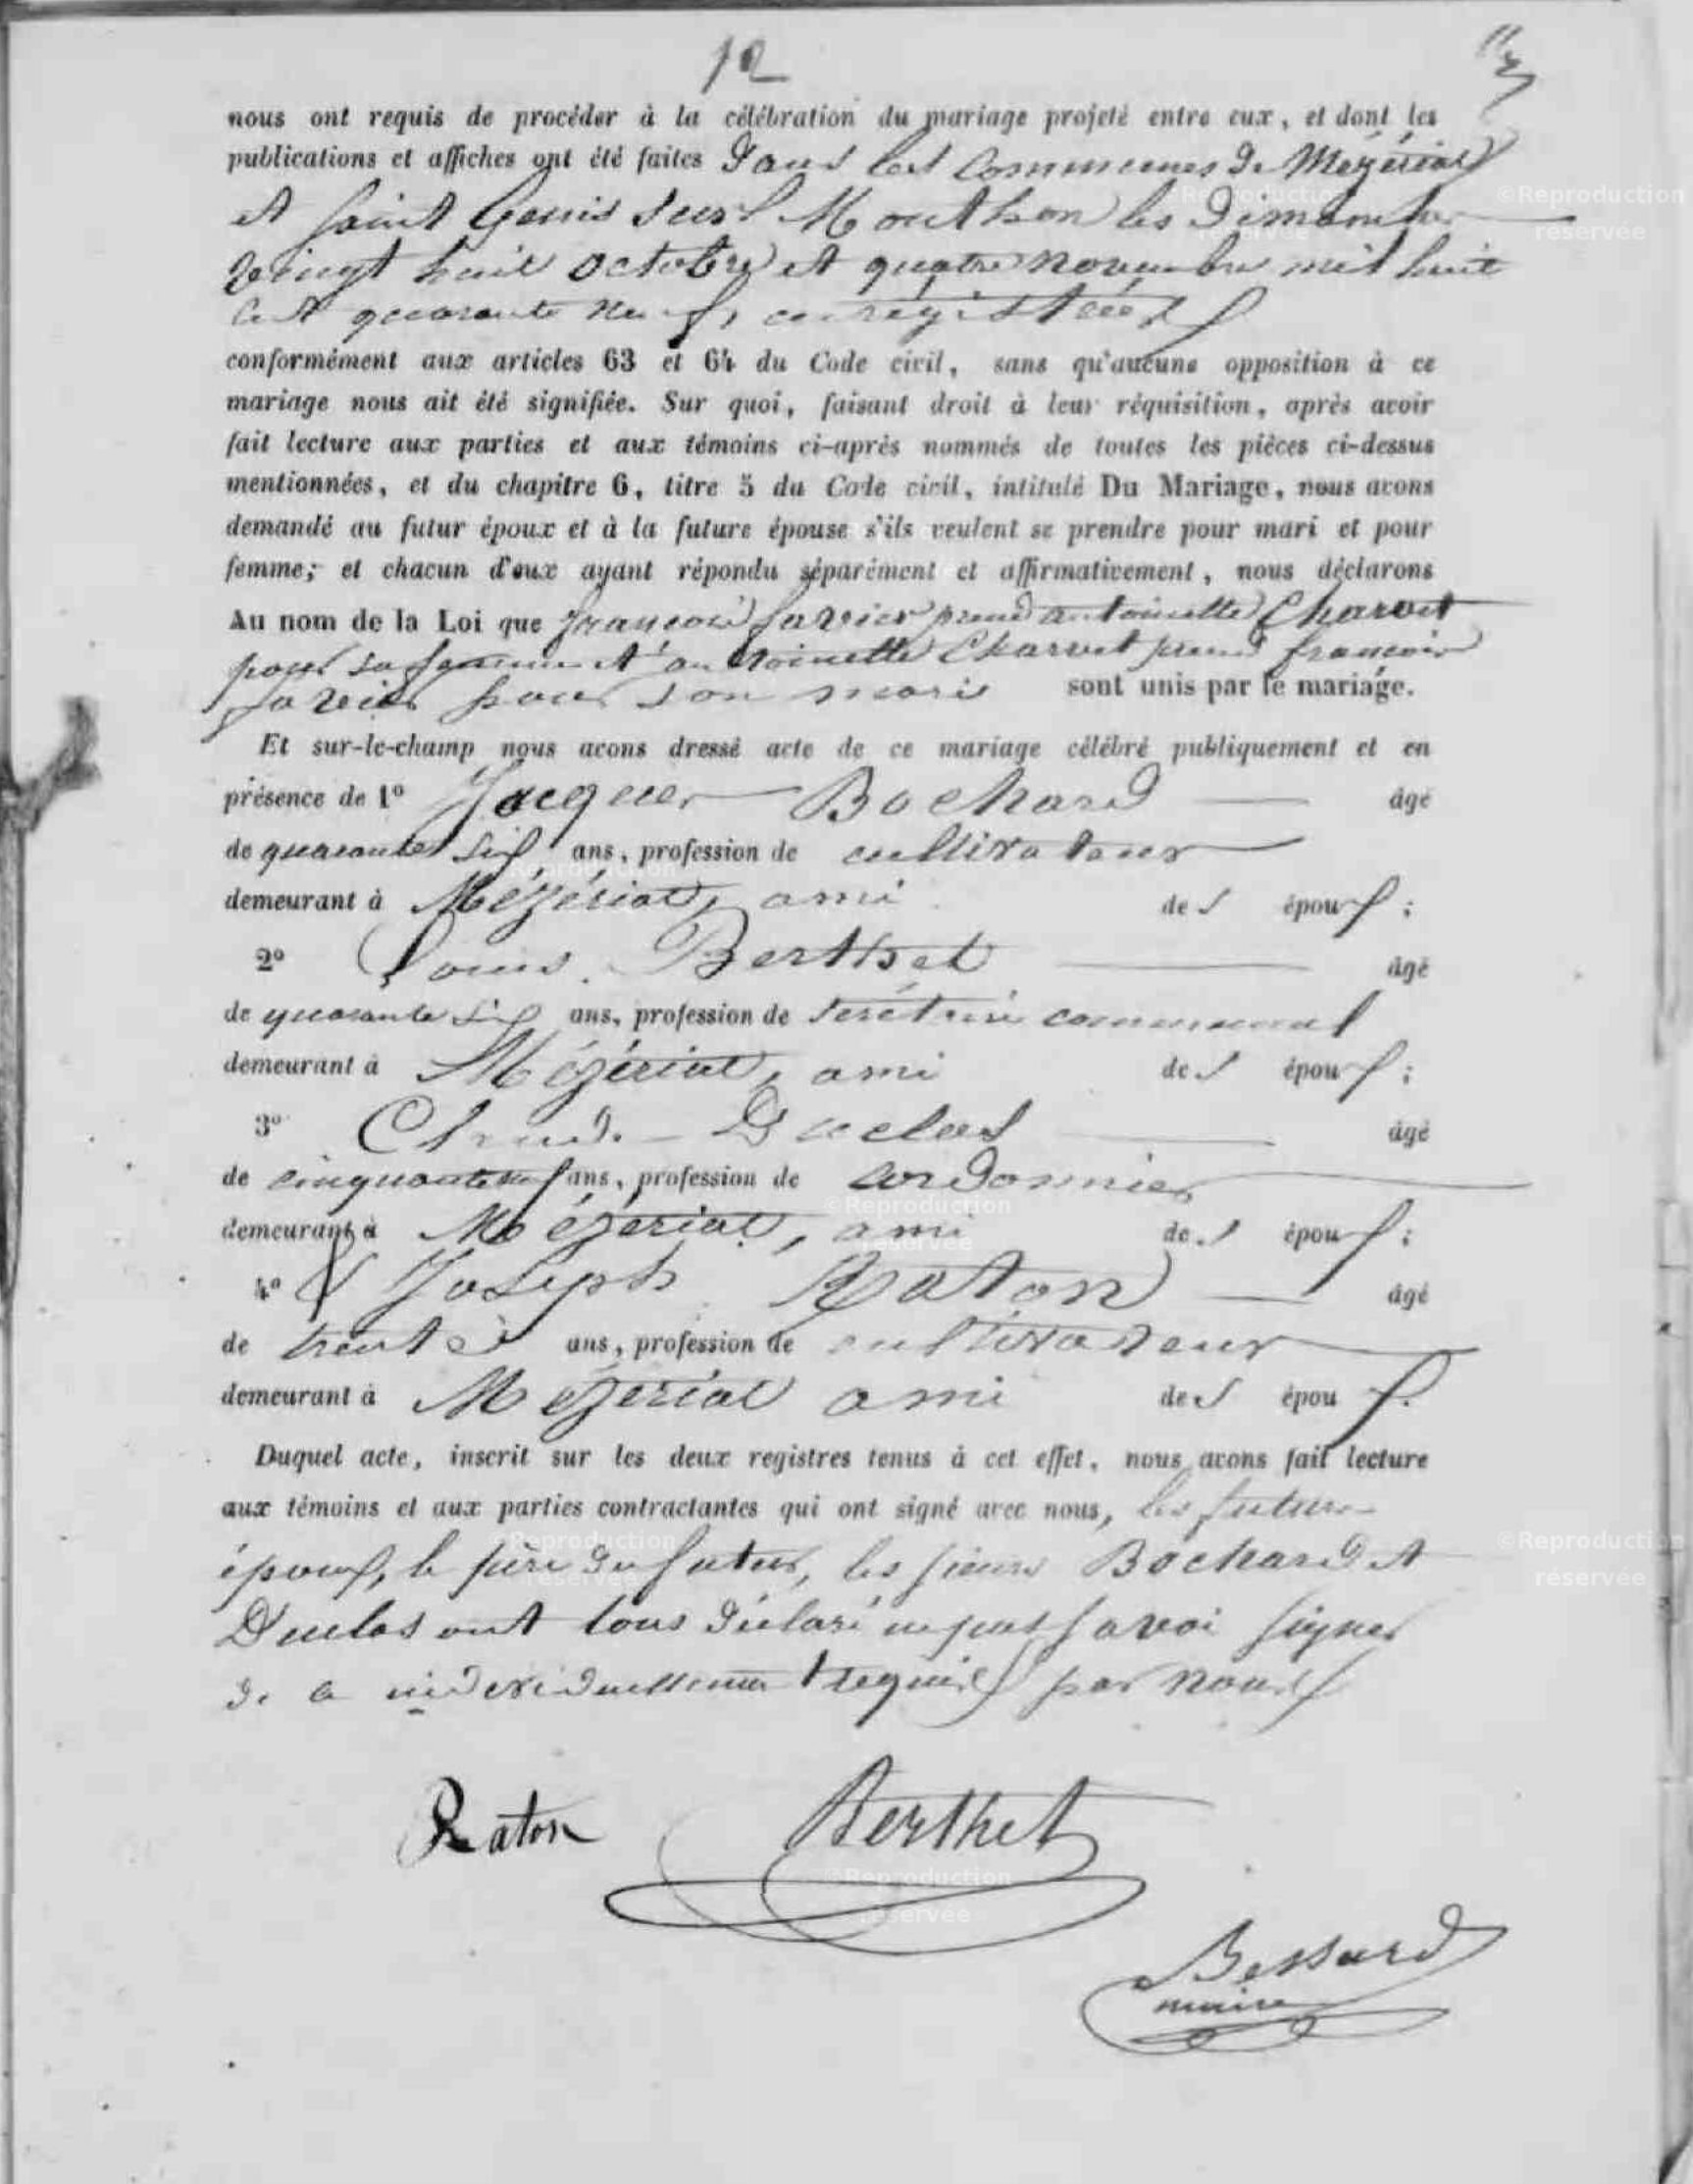 12
nous ont requis de procéder à la célébration du mariage projeté entre eux, et dont les
publications et affiches ont été faites Dans les Communes de Mézériat
et saint Genis sur Menthon les Dimanches
vingt huit octobre et quatre novembre mil huit
cent quarante neuf, enrégistrées
conformément aux articles 63 et 64 du Code civil, sans qu'aucune opposition à ce
mariage nous ait été signifiée. Sur quoi, faisant droit à leur réquisition, après avoir
fait lecture aux parties et aux témoins ci-après nommés de toutes les pièces ci-dessus
mentionnées, et du chapitre 6, titre 5 du Code civil, intitulé Du Mariage, nous avons
demandé au futur époux et à la future épouse s'ils veulent se prendre pour mari et pour
femme; et chacun d'eux ayant répondu séparément et affirmativement, nous déclarons
Au nom de la Loi que françois favier prend antoinette Charvet
pour sa femme et antoinette Charvet prend françois
favier pour son mari sont unis par le mariage.
Et sur-le-champ nous avons dressé acte de ce mariage célébré publiquement et en
présence de 1° Jacques Bochard âgé
de quarante six ans, profession de cultivateur
demeurant à Mézériat, ami des époux;
2° Louis Berthet âgé
de quarante six ans, profession de secrétaire communal
demeurant à Mézériat, ami des époux;
3° Claude Duclos âgé
de cinquante neuf ans, profession de cordonnier
demeurant à Mézériat, ami des époux;
4° Joseph Raton âgé
de trente ans, profession de cultivateur
demeurant à Mézériat ami des époux.
Duquel acte, inscrit sur les deux registres tenus à cet effet, nous avons fait lecture
aux témoins et aux parties contractantes qui ont signé avec nous, les futurs
époux, le père du futur, les sieurs Bochard et
Duclos ont tous déclaré ne pas savoi signer
de ce individuellement requis par nous
Raton Berthet
Bessard
maire
©Reproduction réservée